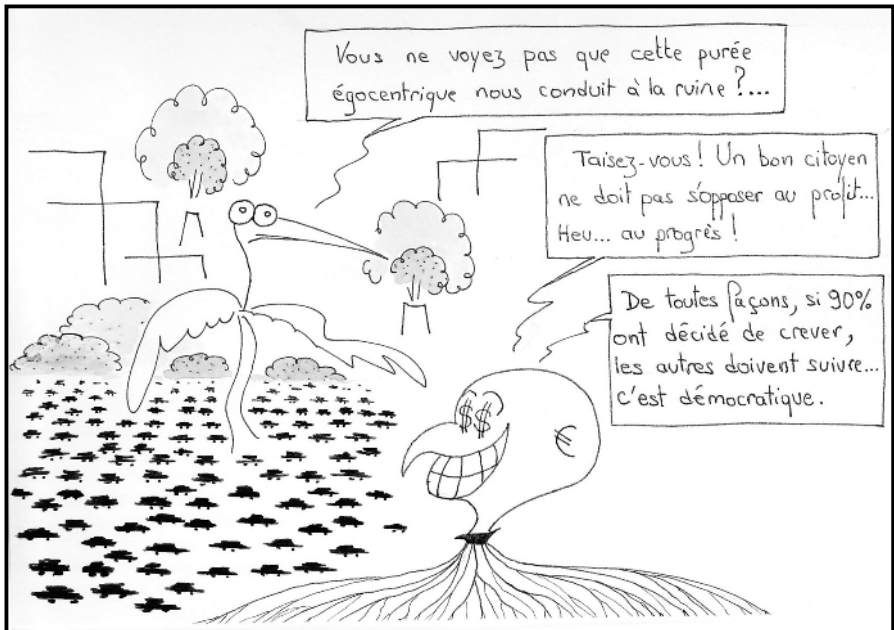 Vous ne voyez pas que cette purée
égocentrique nous conduit à la ruine ?...
Taisez-vous ! Un bon citoyen
ne doit pas s'opposer au profit...
Heu... au progrès !
De toutes façons, si 90%
ont décidé de crever,
les autres doivent suivre...
c'est démocratique.
$ $
€